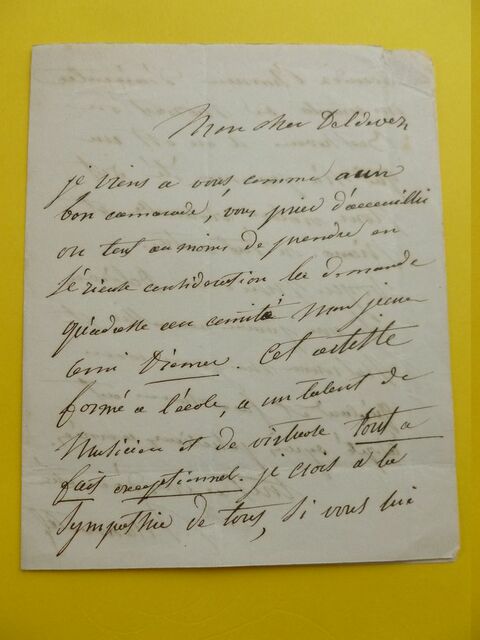 Mon cher Deldevez,
je viens a vous comme a un
bon camarade, vous prier d'accueillir
ou tout au moins de prendre en
Sérieuse consideration la demande
qu'adresse au comité Mon jeune
ami Diemer. Cet artiste
formé a l'école, a un talent de
Musicien et de virtuose tout a
fait exceptionnel. je crois à la
Sympathie de tous, Si vous lui